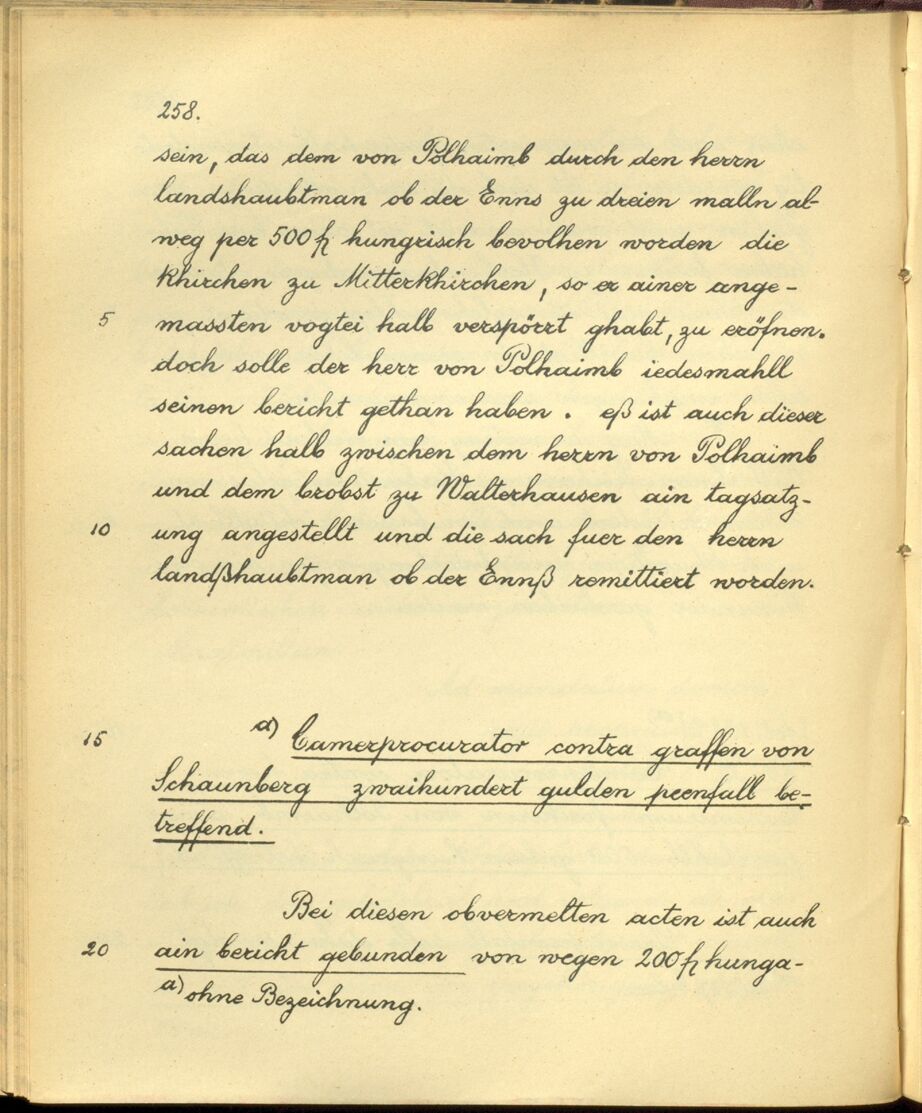 258.
sein, das dem von Polhaimb durch den herrn
landshaubtman ob der Enns zu dreien malln al-
weg per 500 fl hungrisch bevolhen worden die
khirchen zu Mitterkhirchen, so er ainer ange-
5 massten vogtei halb verspörrt ghabt, zu eröfnen.
doch solle der herr von Polhaimb iedesmahll
seinen bericht gethan haben. eß ist auch dieser
sachen halb zwischen dem herrn von Polhaimb
und dem brobst zu Walterhausen ain tagsatz-
10 ung angestellt und die sach fuer den herrn
landßhaubtman ob der Ennß remittiert worden.
15 a) Camerprocurator contra graffen von
Schaunberg zwaihundert gulden peenfall be-
treffend.
Bei diesen obvermelten acten ist auch
20 ain bericht gebunden von wegen 200 fl hunga-
a) ohne Bezeichnung.